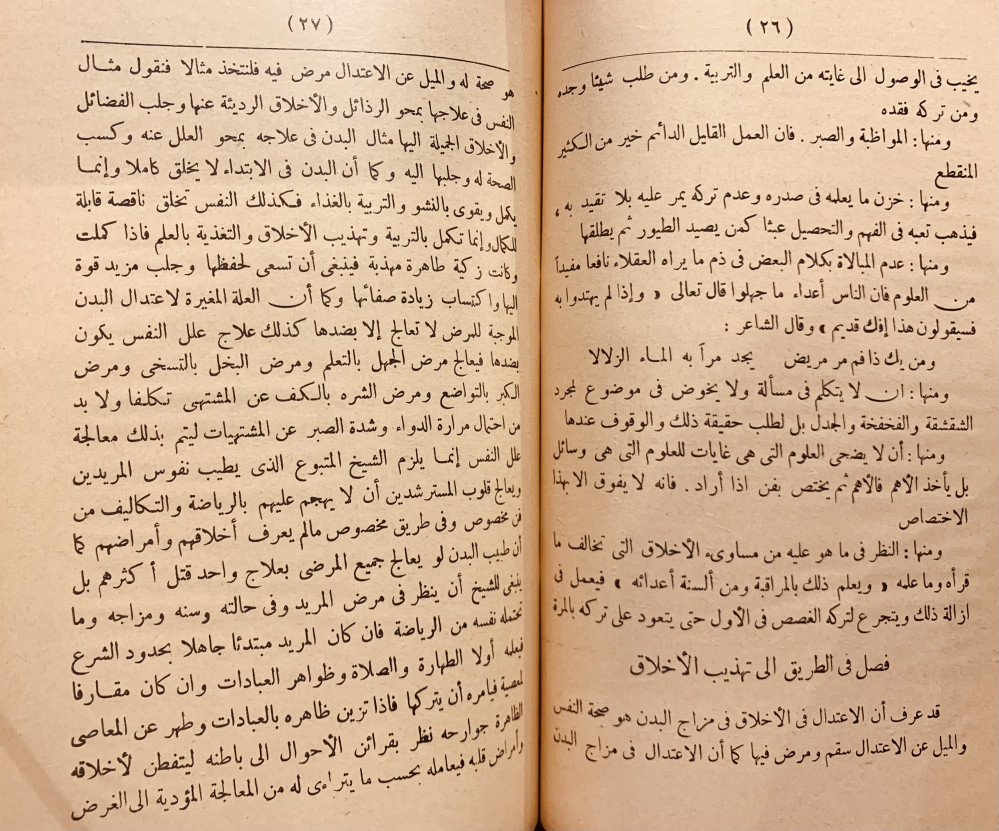 (٢٦)
يخيب فى الوصول الى غايته من العلم والتربية . ومن طلب شيئا وجده
ومن تركه فقده
ومنها : المواظبة والصبر . فان العمل القليل الدائم خير من الكثير
المنقطع
ومنها : خزن ما يعلمه فى صدره وعدم تركه يمر عليه بلا تقيد به ،
فيذهب تعبه فى الفهم والتحصيل عبثا كمن يصيد الطيور ثم يطلقها
ومنها : عدم المبالاة بكلام البعض فى ذم ما يراه العقلاء نافعا مفيدا
من العلوم فان الناس أعداء ما جهلوا قال تعالى « وإذا لم يهتدوا به
فسيقولون هذا إفك قديم » وقال الشاعر :
ومن يك ذا فم مر مريض يجد مرا به الماء الزلالا
ومنها : ان لا يتكلم فى مسألة ولا يخوض فى موضوع لمجرد
الشقشقة والفخفخة والجدل بل لطلب حقيقة ذلك والوقوف عندها
ومنها : أن لا يضحى العلوم التى هى غايات للعلوم التى هى وسائل
بل يأخذ الأهم فالأهم ثم يختص بفن اذا أراد . فانه لا يفوق الا بهذا
الاختصاص
ومنها : النظر فى ما هو عليه من مساوىء الأخلاق التى تخالف ما
قرأه وما علمه « ويعلم ذلك بالمراقبة ومن ألسنة أعدائه » فيعمل فى
ازالة ذلك ويتجرع لتركه الغصص فى الأول حتى يتعود على تركه بالمرة
فصل فى الطريق الى تهذيب الأخلاق
قد عرف أن الاعتدال فى الأخلاق فى مزاج البدن هو صحة النفس
والميل عن الاعتدال سقم ومرض فيها كما أن الاعتدال فى مزاج البدن
(٢٧)
هو صحة له والميل عن الاعتدال مرض فيه فلنتخذ مثالا فنقول مثال
النفس فى علاجها بمحو الرذائل والأخلاق الرديئة عنها وجلب الفضائل
والأخلاق الجميلة اليها مثال البدن فى علاجه بمحو العلل عنه وكسب
الصحة له وجلبها اليه وكما أن البدن فى الابتداء لا يخلق كاملا وإنما
يكمل ويقوى بالنشو والتربية بالغذاء فكذلك النفس تخلق ناقصة قابلة
للكمال وإنما تكمل بالتربية وتهذيب الأخلاق والتغذية بالعلم فاذا كملت
وكانت زكية طاهرة مهذبة فينبغى أن تسعى لحفظها وجلب مزيد قوة
اليها واكتساب زيادة صفائها وكما أن العلة المغيرة لاعتدال البدن
الموجبة للمرض لا تعالج إلا بضدها كذلك علاج علل النفس يكون
بضدها فيعالج مرض الجهل بالتعلم ومرض البخل بالتسخى ومرض
الكبر بالتواضع ومرض الشره بالكف عن المشتهى تكلفا ولا بد
من احتمال مرارة الدواء وشدة الصبر عن المشتهيات ليتم بذلك معالجة
علل النفس إنما يلزم الشيخ المتبوع الذى يطيب نفوس المريدين
ويعالج قلوب المسترشدين أن لا يهجم عليهم بالرياضة والتكاليف من
فن مخصوص وفى طريق مخصوص مالم يعرف أخلاقهم وأمراضهم كما
أن طبيب البدن لو يعالج جميع المرضى بعلاج واحد قتل أكثرهم بل
ينبغى للشيخ أن ينظر فى مرض المريد وفى حالته وسنه ومزاجه وما
تحتمله نفسه من الرياضة فان كان المريد مبتدئا جاهلا بحدود الشرع
فيعلمه أولا الطهارة والصلاة وظواهر العبادات وان كان مقارفا
لمعصية فيامره أن يتركها فاذا تزين ظاهره بالعبادات وطهر عن المعاصى
الظاهرة جوارحه نظر بقرائن الأحوال الى باطنه ليتفطن لأخلاقه
وأمراض قلبه فيعامله بحسب ما يتراءى له من المعالجة المؤدية الى الغرض